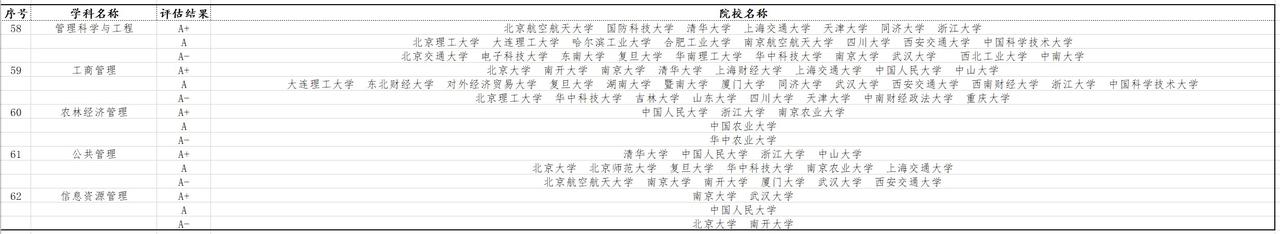 序号 学科名称 评估结果 院校名称
58 管理科学与工程 A+ 北京航空航天大学 国防科技大学 清华大学 上海交通大学 天津大学 同济大学 浙江大学
A 北京理工大学 大连理工大学 哈尔滨工业大学 合肥工业大学 南京航空航天大学 四川大学 西安交通大学 中国科学技术大学
A- 北京交通大学 电子科技大学 东南大学 复旦大学 华南理工大学 华中科技大学 南京大学 武汉大学 西北工业大学 中南大学
59 工商管理 A+ 北京大学 南开大学 南京大学 清华大学 上海财经大学 上海交通大学 中国人民大学 中山大学
A 大连理工大学 东北财经大学 对外经济贸易大学 复旦大学 湖南大学 暨南大学 厦门大学 同济大学 武汉大学 西安交通大学 西南财经大学 浙江大学 中国科学技术大学
A- 北京理工大学 华中科技大学 吉林大学 山东大学 四川大学 天津大学 中南财经政法大学 重庆大学
60 农林经济管理 A+ 中国人民大学 浙江大学 南京农业大学
A 中国农业大学
A- 华中农业大学
61 公共管理 A+ 清华大学 中国人民大学 浙江大学 中山大学
A 北京大学 北京师范大学 复旦大学 华中科技大学 南京农业大学 上海交通大学
A- 北京航空航天大学 南京大学 南开大学 厦门大学 武汉大学 西安交通大学
62 信息资源管理 A+ 南京大学 武汉大学
A 中国人民大学
A- 北京大学 南开大学